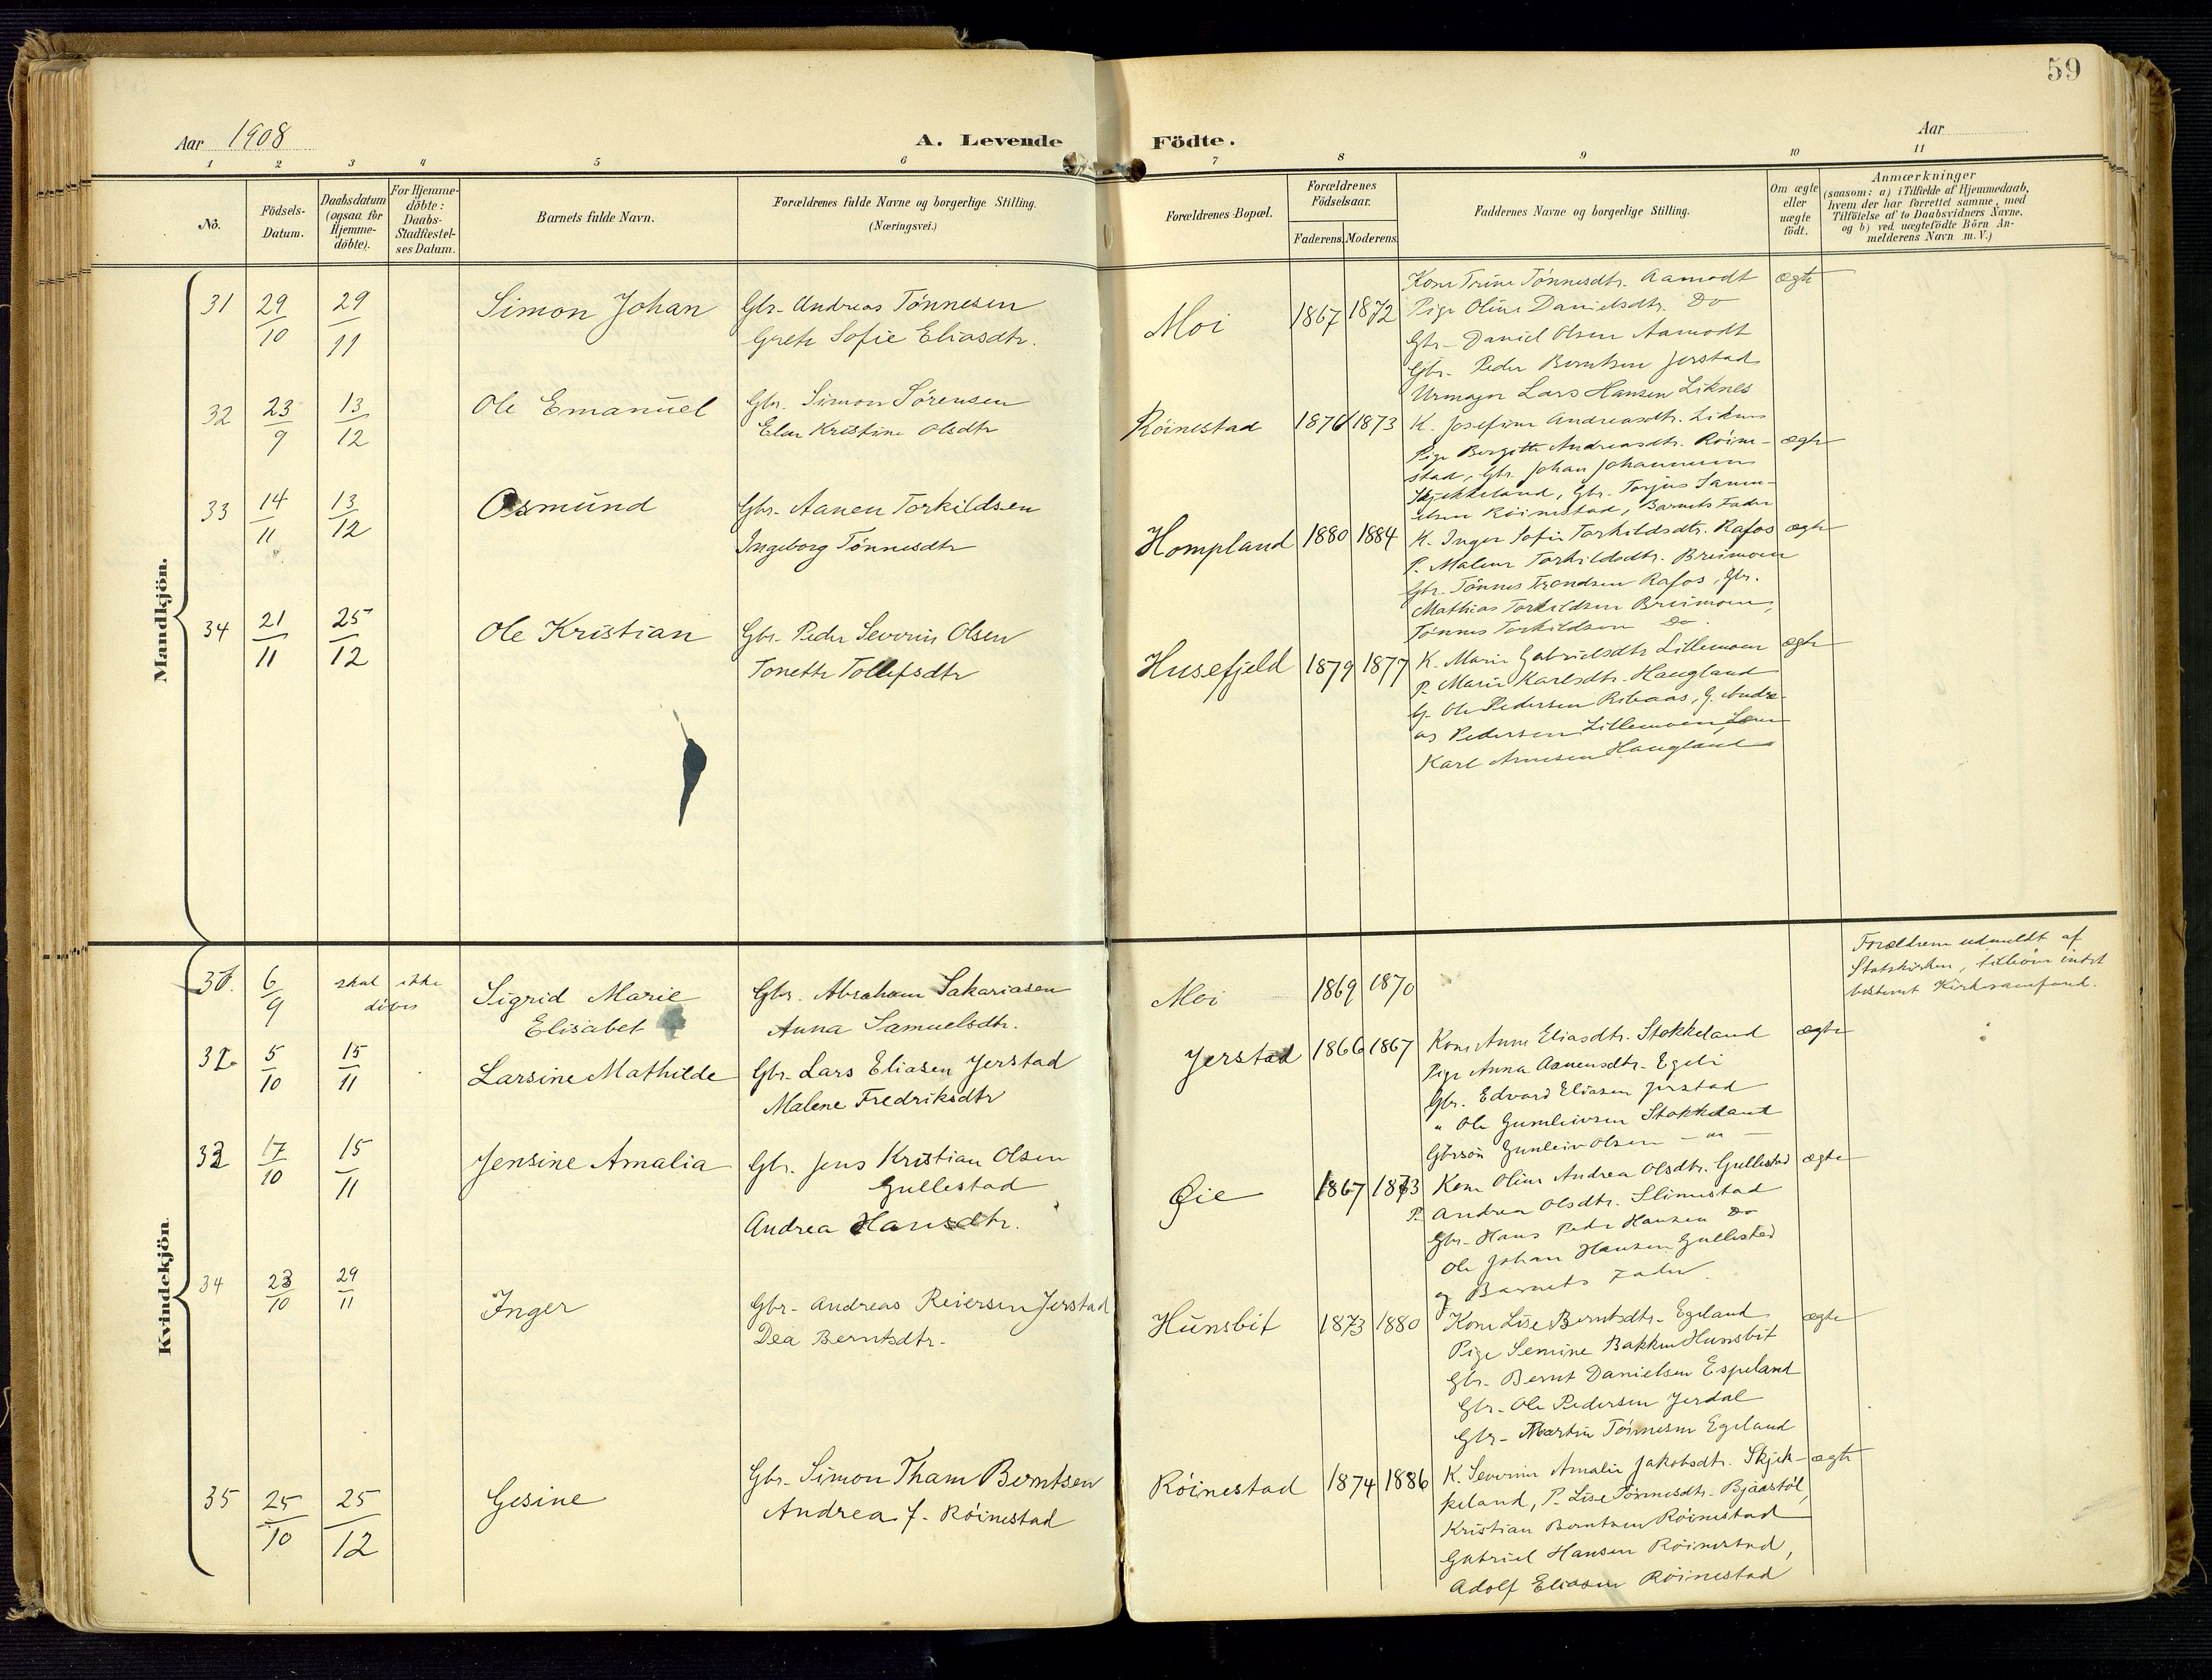 59
Aar 1908
A. Levende
Födte.
Aar
1 2 3 4 5 6 7 8 9 10 11
No.
Födsels-
Datum.
Daabsdatum
(ogsaa for
Hjemme-
döbte).
For Hjemme-
döbte:
Daabs-
Stadfæstel-
ses Datum.
Barnets fulde Navn.
Forældrenes fulde Navne og borgerlige Stilling.
(Næringsvei.)
Forældrenes Bopæl.
Forældrenes
Födselsaar.
Faderens. Moderens.
Faddernes Navne og borgerlige Stilling.
Om ægte
eller
uægte
födt.
Anmærkninger
(saasom: a) i Tilfælde af Hjemmedaab,
hvem der har forrettet samme, med
Tilföielse af to Daabsvidners Navne.
og b) ved uægtefödte Börn An-
melderens Navn m. V.)
Mandkjön.
31 29/10 29/11 Simon Johan
Gbr. Andreas Tønnesen
Grete Sofie Eliasdtr.
Moi 1867 1872
Kone Trine Tønnesdtr. Aamodt ægte
Pige Oline Danielsdtr. Do
Gbr. Daniel Olsen Aamodt
Gbr. Peder Berntsen Jerstad
Urmager Lars Hansen Liknes
32 23/9 13/12 Ole Emanuel
Gbr. Simon Sørensen
Elen Kristine Olsdtr
Röinestad 1876 1873
K. Josefine Andreasdtr. Liknes
Pige Bergitte Andreasdtr. Röine- ægte
stad, Gbr. Johan Johannessen
Skjekkeland, Gbr. Torjus Samu-
elsen Röinestad, Barnets Fader
33 14/11 13/12 Osmund
Gbr. Aanen Torkildsen
Ingeborg Tönnesdtr
Hompland 1880 1884
K. Inger Sofie Torkildsdtr. Rafos ægte
P. Malene Torkildsdtr. Breimoen
Gbr. Tönnes Trondsen Rafos, Gbr.
Mathias Torkildsen Breimoen,
Tönnes Torkildsen Do.
34 21/11 25/12 Ole Kristian
Gbr. Peder Severin Olsen
Tonette Tollefsdtr
Husefjeld 1879 1877
K. Marie Gabrielsdtr Lillemoen ægte
P. Marie Karlsdtr. Haugland
G. Ole Pedersen Ribaas, G. Andre-
as Pedersen Lillemoen,
Karl Arnesen Haugland
Kvindekjön.
31. 6/9 skal ikke
döbes
Sigrid Marie
Elisabet
Gbr. Abraham Sakariasen
Anna Samuelsdtr.
Moi 1869 1870
Forældrene udmeldt af
Statskirken, tilhører intet
bestemt Kirkesamfund.
32 5/10 15/11 Larsine Mathilde
Gbr. Lars Eliasen Jerstad
Malene Fredriksdtr
Jerstad 1866 1867
Kone Anne Eliasdtr. Stokkeland ægte
Pige Anna Aanensdtr. Egeli
Gbr. Edvard Eliasen Jerstad
" Ole Gunleivsen Stokkeland
Gbrsön Gunleiv Olsen — " —
33 17/10 15/11 Jensine Amalia
Gbr. Jens Kristian Olsen
Gullestad
Andrea Hansdtr.
Øie 1867 1873
Kone Oline Andrea Olsdtr. Gullestad ægte
P. Andrea Olsdtr. Slimestad
Gbr. Hans Peder Hansen Do
Ole Johan Hansen Gullestad
og Barnets Fader.
34 23/10 29/11 Inger
Gbr. Andreas Reiersen Jerstad
Dea Berntsdtr.
Hunsbit 1873 1880
Kone Lise Berntsdtr. Egeland ægte
Pige Semine Bakken Hunsbit
Gbr. Bernt Danielsen Espeland
Gbr. Ole Pedersen Jerdal
Gbr. Martin Tönnesen Egeland
35 25/10 25/12 Gesine
Gbr. Simon Tham Berntsen
Andrea f. Röinestad
Röinestad 1874 1886
K. Severine Amalie Jakobsdtr. Skjek- ægte
keland, P. Lise Tönnesdtr. Bjaastöl,
Kristian Berntsen Röinestad
Gabriel Hansen Röinestad,
Adolf Eliasen Röinestad